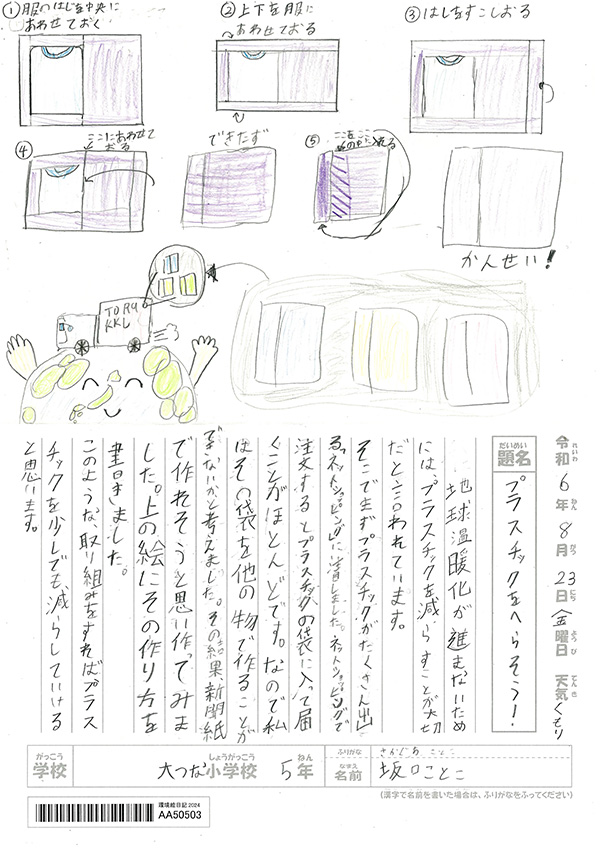 ①服のはじを中央に
あわせておく
②上下を服に
あわせておる
③はしをすこしおる
④
ここにあわせて
おる
できたず
⑤
ここをここ
の中に入れる
かんせい!
TORA
KKL
令和6年8月23日金曜日 天気くもり
れいわ ねん がつ にち ようび てんき
だいめい
題名
プラスチックをへらそう!
地球温暖化が進まないため
には、プラスチックを減らすことが大切
だと言われています。
そこで生ずプラスチックがたくさん出
る「ネットショッピング」に着目しました。ネットショッピングで
注文するとプラスチックの袋に入って届
くことがほとんどです。なので私
はその袋を他の物で作ることが
できないかと考えました。その結果、新聞紙
で作れそうと思い作ってみま
した。上の絵にその作り方を
書きました。
このような、取り組みをすればプラス
チックを少しでも、減らしていける
と思います。
がっこう しょうがっこう ねん
学校 大つな小学校 5年
ふりがな さかぐち ことこ
なまえ
名前 坂口ことこ
(漢字で名前を書いた場合は、ふりがなをふってください)
環境絵日記2024
AA50503